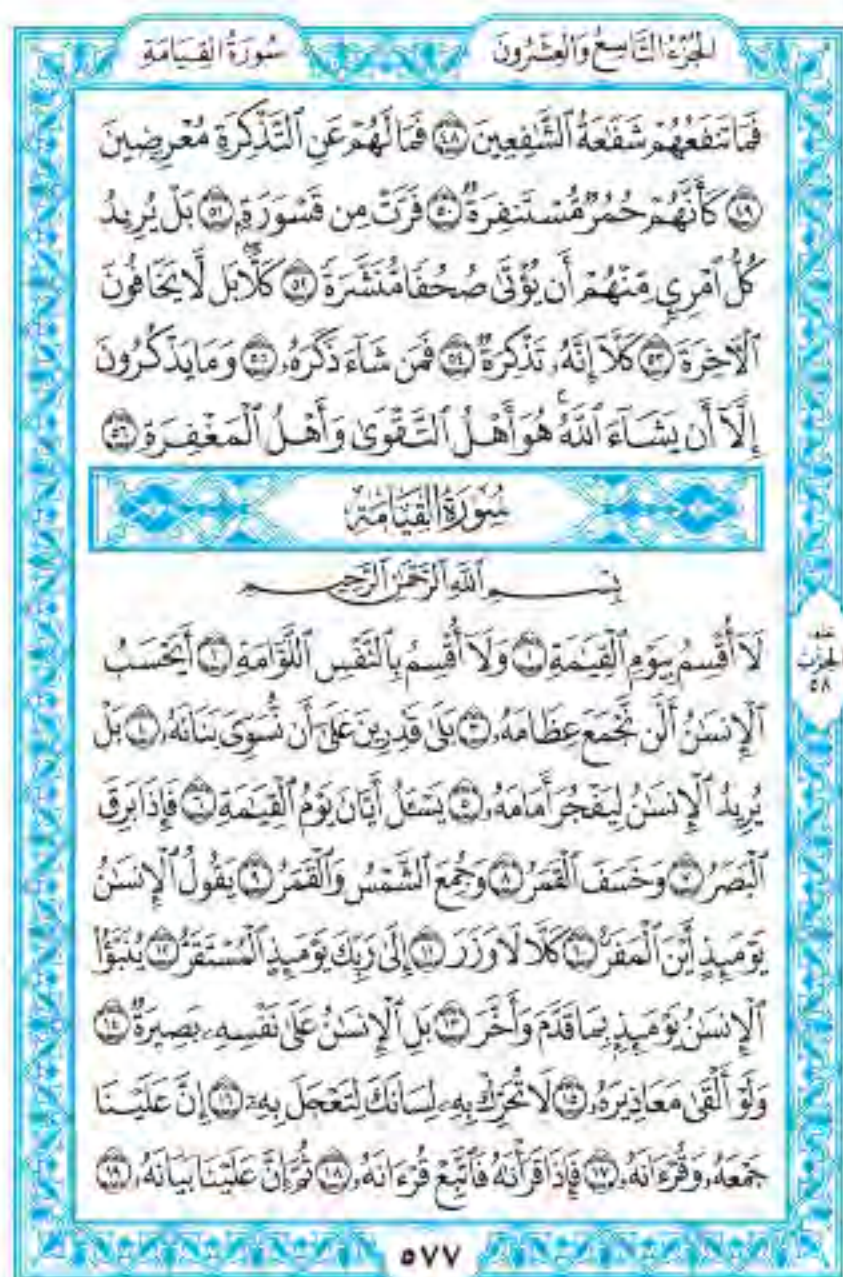 الجُزْءُ التَّاسِعُ وَالْعِشْرُونَ
سُورَةُ القِيَامَةِ
فَمَا تَنفَعُهُمْ شَفَٰعَةُ ٱلشَّٰفِعِينَ ٤٨ فَمَا لَهُمْ عَنِ ٱلتَّذْكِرَةِ مُعْرِضِينَ
٤٩ كَأَنَّهُمْ حُمُرٌ مُّسْتَنفِرَةٌ ٥٠ فَرَّتْ مِن قَسْوَرَةٍۭ ٥١ بَلْ يُرِيدُ
كُلُّ ٱمْرِئٍ مِّنْهُمْ أَن يُؤْتَىٰ صُحُفًا مُّنَشَّرَةً ٥٢ كَلَّا ۖ بَل لَّا يَخَافُونَ
ٱلْءَاخِرَةَ ٥٣ كَلَّآ إِنَّهُۥ تَذْكِرَةٌ ٥٤ فَمَن شَآءَ ذَكَرَهُۥ ٥٥ وَمَا يَذْكُرُونَ
إِلَّآ أَن يَشَآءَ ٱللَّهُ ۚ هُوَ أَهْلُ ٱلتَّقْوَىٰ وَأَهْلُ ٱلْمَغْفِرَةِ ٥٦
سُورَةُ القِيَامَةِ
بِسْمِ ٱللَّهِ ٱلرَّحْمَٰنِ ٱلرَّحِيمِ
لَآ أُقْسِمُ بِيَوْمِ ٱلْقِيَٰمَةِ ١ وَلَآ أُقْسِمُ بِٱلنَّفْسِ ٱللَّوَّامَةِ ٢ أَيَحْسَبُ
ٱلْإِنسَٰنُ أَلَّن نَّجْمَعَ عِظَامَهُۥ ٣ بَلَىٰ قَٰدِرِينَ عَلَىٰٓ أَن نُّسَوِّىَ بَنَانَهُۥ ٤ بَلْ
يُرِيدُ ٱلْإِنسَٰنُ لِيَفْجُرَ أَمَامَهُۥ ٥ يَسْـَٔلُ أَيَّانَ يَوْمُ ٱلْقِيَٰمَةِ ٦ فَإِذَا بَرِقَ
ٱلْبَصَرُ ٧ وَخَسَفَ ٱلْقَمَرُ ٨ وَجُمِعَ ٱلشَّمْسُ وَٱلْقَمَرُ ٩ يَقُولُ ٱلْإِنسَٰنُ
يَوْمَئِذٍ أَيْنَ ٱلْمَفَرُّ ١٠ كَلَّا لَا وَزَرَ ١١ إِلَىٰ رَبِّكَ يَوْمَئِذٍ ٱلْمُسْتَقَرُّ ١٢ يُنَبَّؤُا۟
ٱلْإِنسَٰنُ يَوْمَئِذٍۭ بِمَا قَدَّمَ وَأَخَّرَ ١٣ بَلِ ٱلْإِنسَٰنُ عَلَىٰ نَفْسِهِۦ بَصِيرَةٌ ١٤
وَلَوْ أَلْقَىٰ مَعَاذِيرَهُۥ ١٥ لَا تُحَرِّكْ بِهِۦ لِسَانَكَ لِتَعْجَلَ بِهِۦٓ ١٦ إِنَّ عَلَيْنَا
جَمْعَهُۥ وَقُرْءَانَهُۥ ١٧ فَإِذَا قَرَأْنَٰهُ فَٱتَّبِعْ قُرْءَانَهُۥ ١٨ ثُمَّ إِنَّ عَلَيْنَا بَيَانَهُۥ ١٩
الحِزْبُ
٥٨
٥٧٧